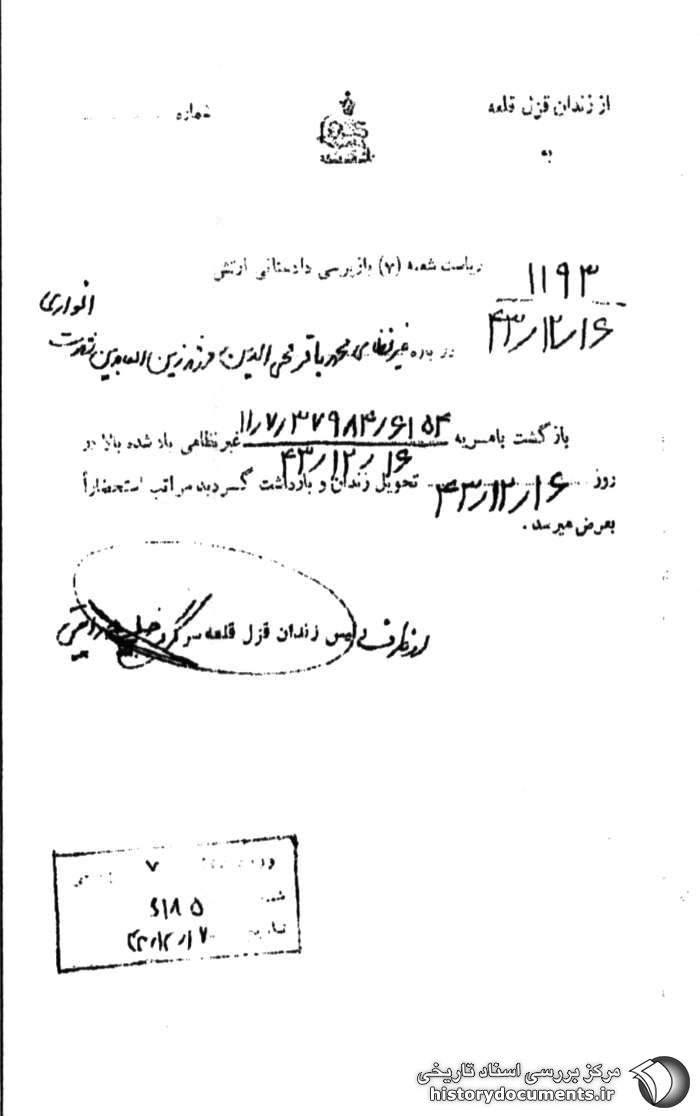 از زندان قزل قلعه
شماره
به
ریاست شعبه (۷) بازپرسی دادستانی ارتش
۱۱۹۳
۴۳/۱۲/۱۶
انواری
درباره غیرنظامی محمد باقر محی الدین فرزند زین العابدین شهرت
بازگشت بامریه ۱۱/۷/۳۷۹۸۴/۶۱۵۴ غیرنظامی یاد شده بالا در
۴۳/۱۲/۱۶
روز ۴۳/۱۲/۱۶ تحویل زندان و بازداشت گردید مراتب استحضاراً
بعرض میرسد.
از طرف رئیس زندان قزل قلعه سرگرد
۷
شماره ۶۱۸۵
تاریخ ۴۳/۱۲/۱۷
مرکز بررسی اسناد تاریخی
historydocuments.ir